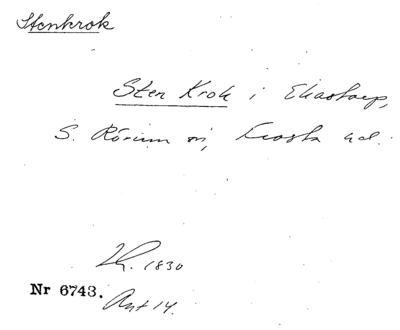 Stenkrok
Sten Krok i Ekastorp,
S. Rörum sn, Frosta hd.
1830
Nr 6743.
Ant 14.